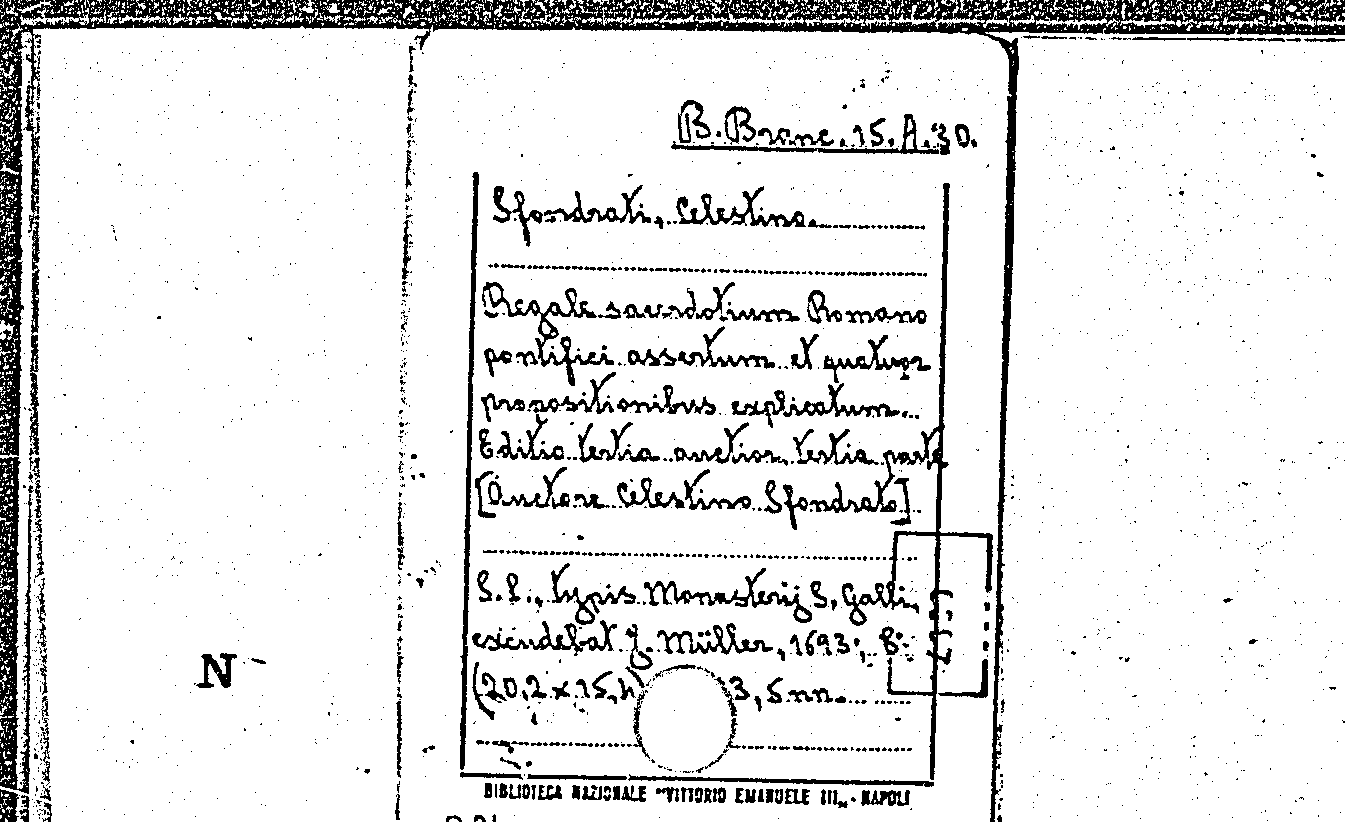 B. Branc. 15. A. 30.
Sfondrati, Celestino.
Regale sacerdotium Romano
pontifici assertum et quatuor
propositionibus explicatum...
Editio tertia auctior tertia parte
[Auctore Celestino Sfondrato].
S.l., typis Monasterij S. Galli,
excudebat J. Müller, 1693; 8°
(20,2 x 15,4) 3, 5 nn.
N
BIBLIOTECA NAZIONALE "VITTORIO EMANUELE III„ - NAPOLI